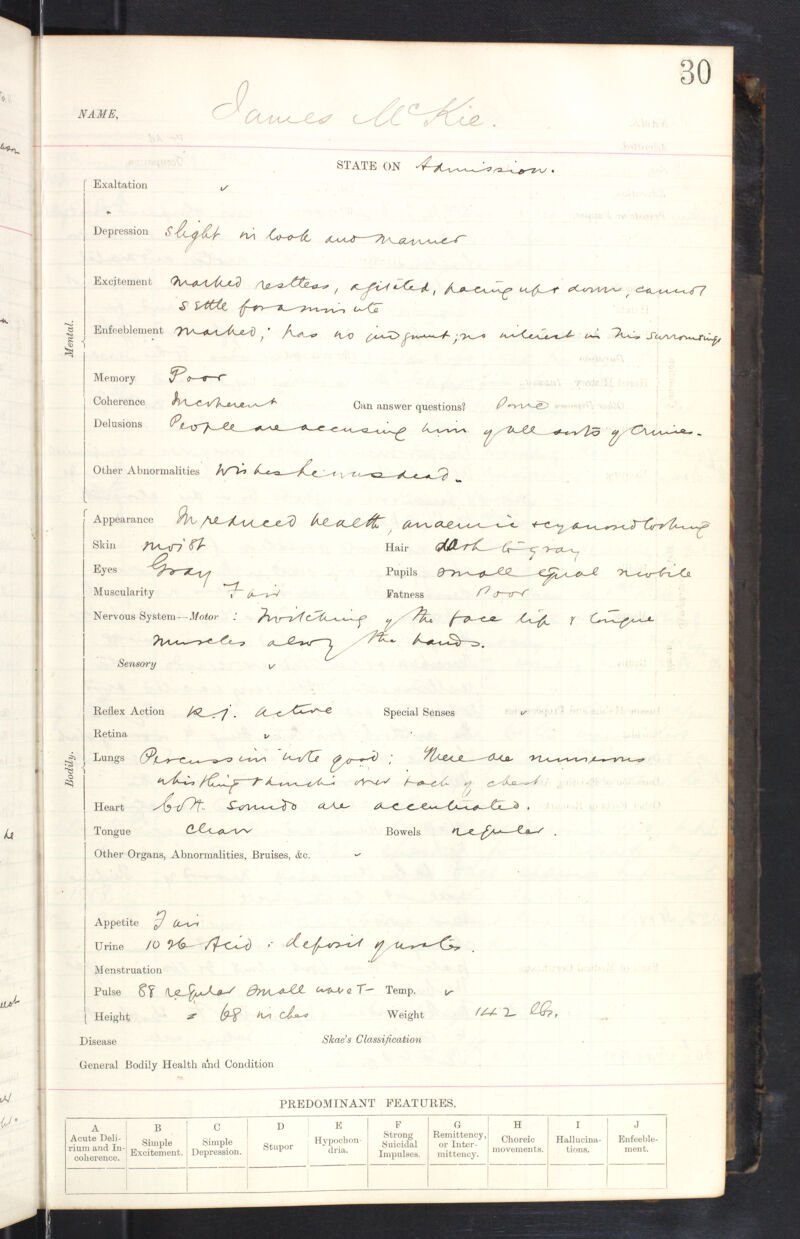 30
NAME, James McKie.
STATE ON Admission.
Mental.
Exaltation ✓
Depression slight in look and manner
Excitement marked restless, agitated, pacing up & down, cannot
settle for a minute
Enfeeblement marked; has no judgment; no interest in his surroundings
Memory Poor
Coherence Incoherent Can answer questions? Some
Delusions People are accusing him of all sorts of crimes.
Other Abnormalities Wishes he was dead.
Bodily.
Appearance In reduced health, anaemic & cyanosed looking
Skin moist Hair dark to gray
Eyes Gray Pupils small equal mobile
Muscularity Fair Fatness Poor
Nervous System—Motor : Twitching of the face lip & tongue
muscles also of the hands.
Sensory ✓
Reflex Action K.j. active Special Senses ✓
Retina ✓
Lungs Percussion note good; There are numerous
whistling rhonchi over back of chest
Heart Both sounds are accentuated.
Tongue Clean Bowels regular.
Other Organs, Abnormalities, Bruises, &c. ✓
Appetite Fair
Urine 1026 Acid: deposit of urates.
Menstruation
Pulse 88 regular small wave T- Temp. ✓
Height = 68 inches Weight 142 lbs.
Disease Skae's Classification
General Bodily Health and Condition
PREDOMINANT FEATURES.
A B C D E F G H I J
Acute Delirium and Incoherence. Simple Excitement. Simple Depression. Stupor Hypochondria. Strong Suicidal Impulses. Remittency, or Intermittency. Choreic movements. Hallucinations. Enfeeblement.